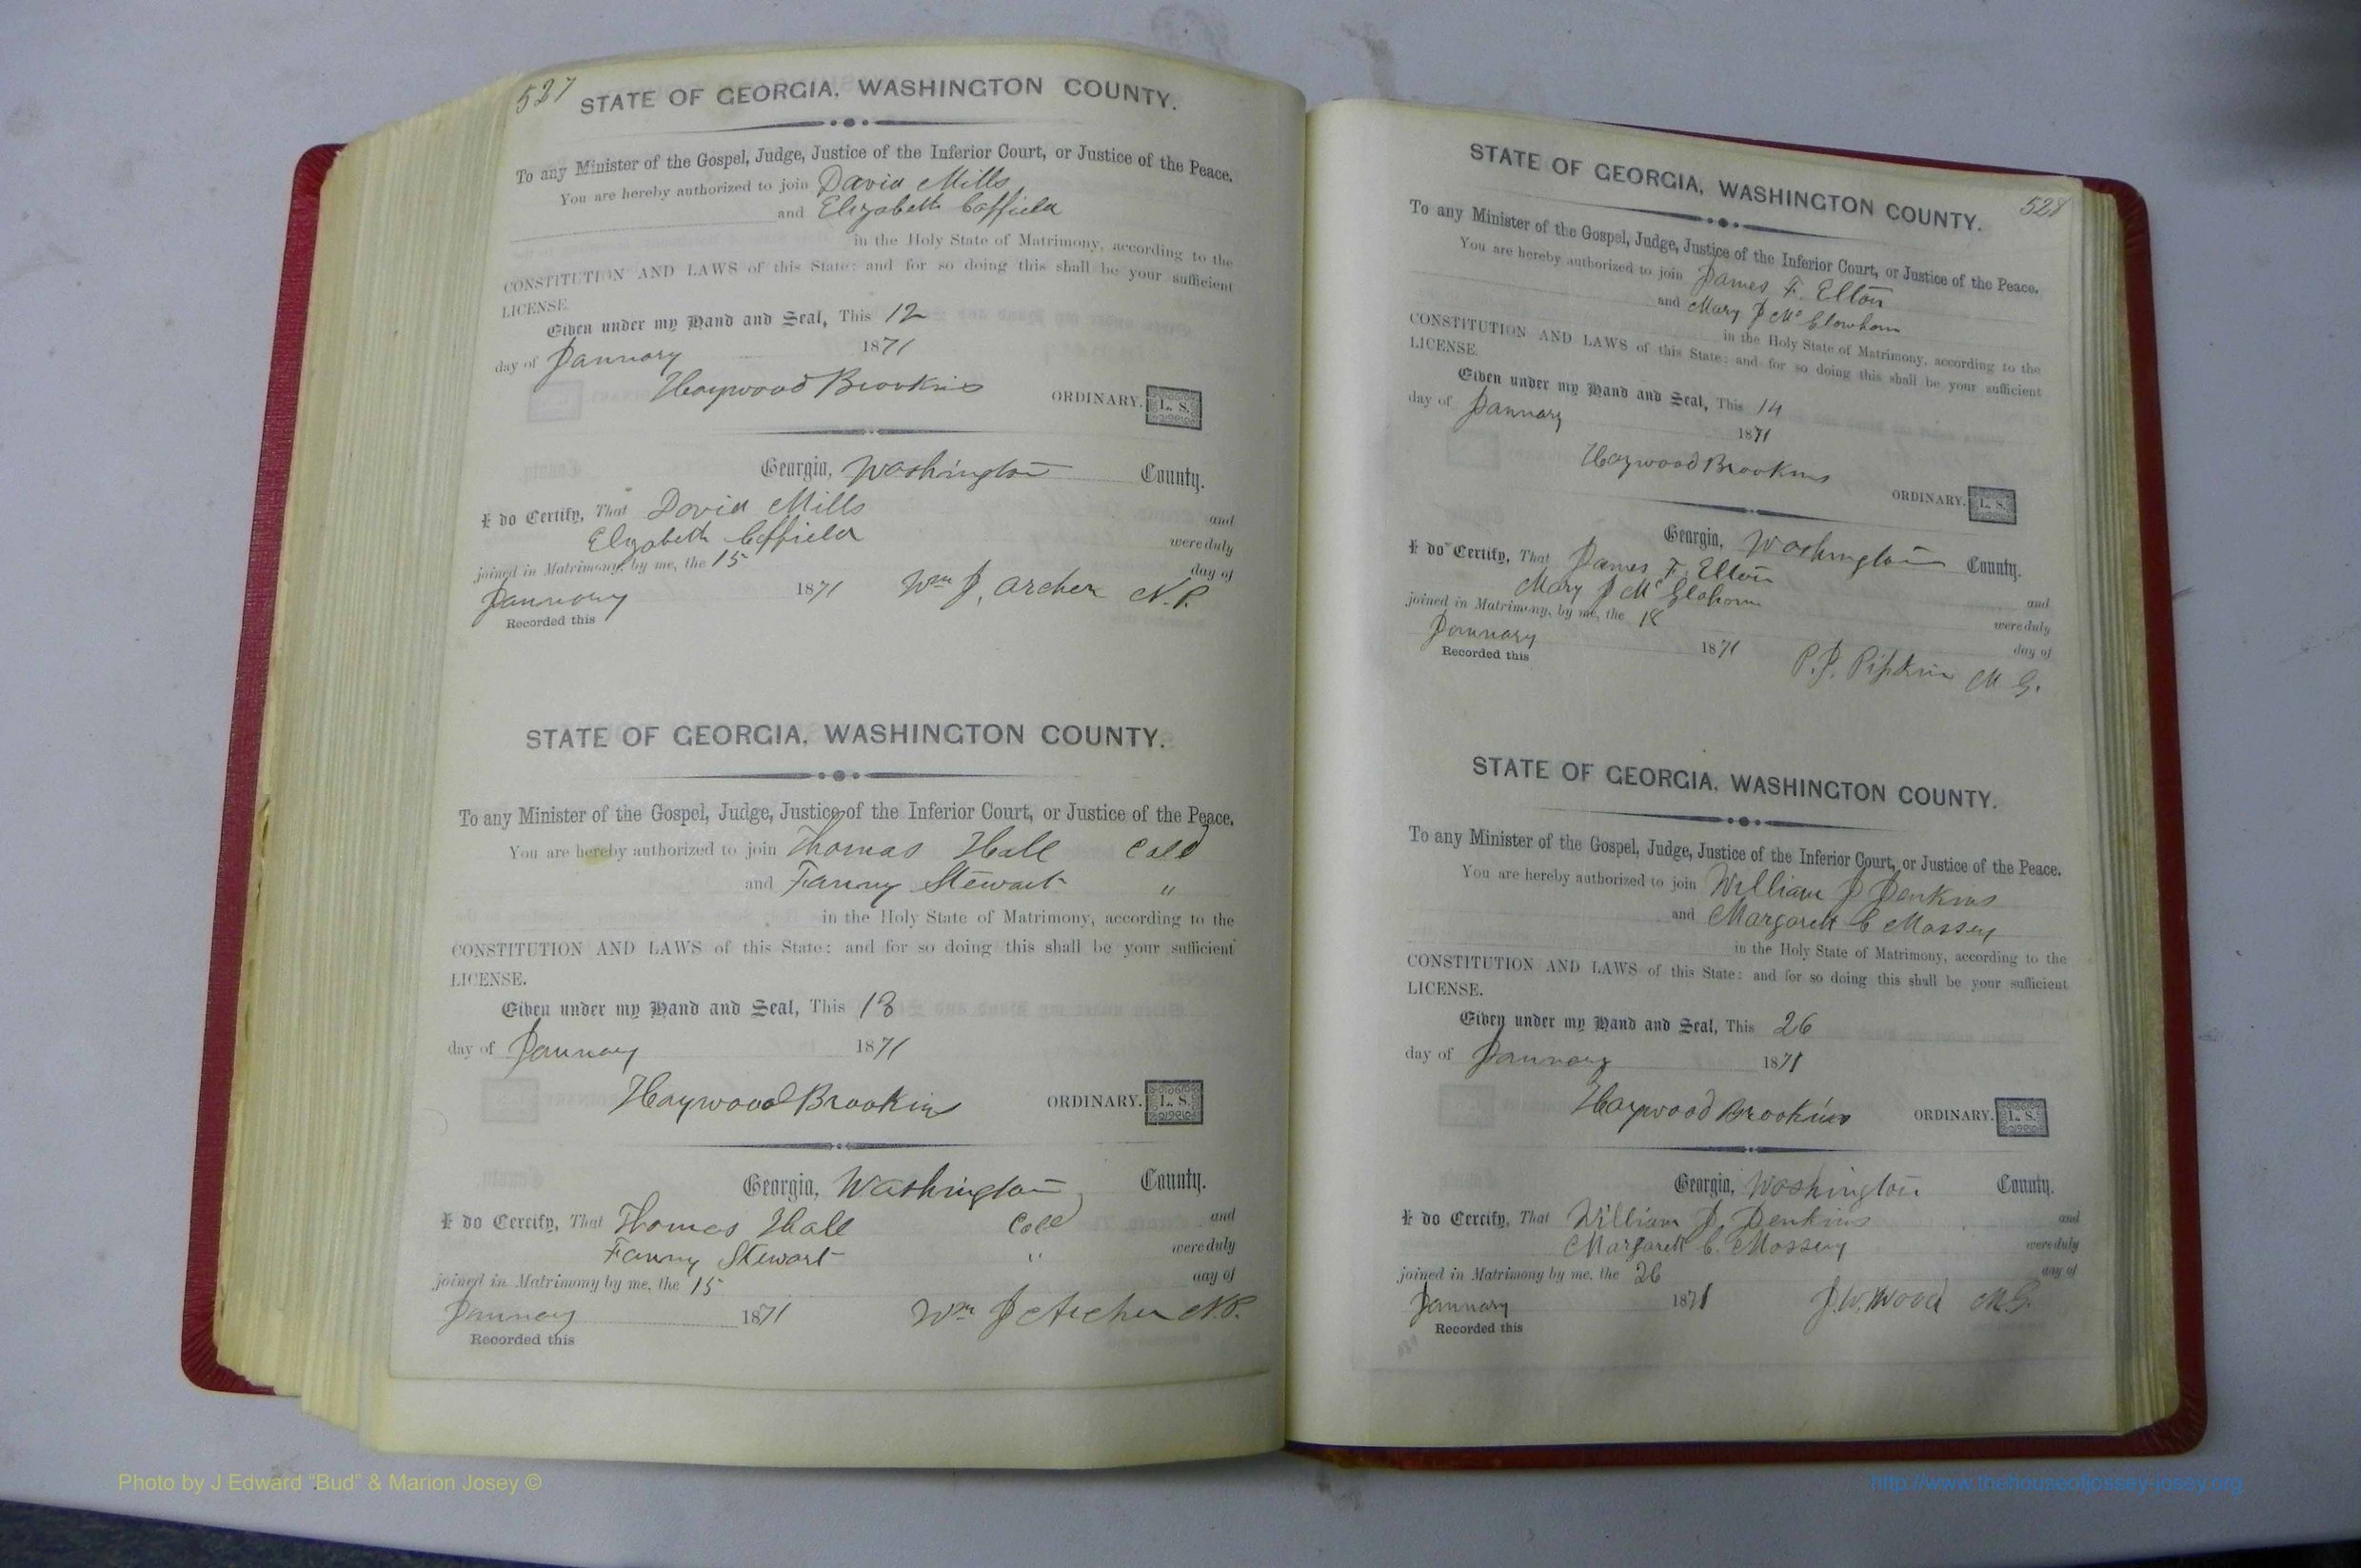 527
STATE OF GEORGIA, WASHINGTON COUNTY.
To any Minister of the Gospel, Judge, Justice of the Inferior Court, or Justice of the Peace.
You are hereby authorized to join David Mills
and Elizabeth Coffield
in the Holy State of Matrimony, according to the
CONSTITUTION AND LAWS of this State: and for so doing this shall be your sufficient
LICENSE.
Given under my Hand and Seal, This 12
day of January 1871
Haywood Brookins ORDINARY. L. S.
Georgia, Washington County.
I do Certify, That David Mills and
Elizabeth Coffield were duly
joined in Matrimony, by me, the 15 day of
January 1871 Wm J. Archer N.P.
Recorded this
STATE OF GEORGIA, WASHINGTON COUNTY.
To any Minister of the Gospel, Judge, Justice of the Inferior Court, or Justice of the Peace.
You are hereby authorized to join Thomas Hall Cold
and Fanny Stewart "
in the Holy State of Matrimony, according to the
CONSTITUTION AND LAWS of this State: and for so doing this shall be your sufficient
LICENSE.
Given under my Hand and Seal, This 13
day of January 1871
Haywood Brookins ORDINARY. L. S.
Georgia, Washington County.
I do Certify, That Thomas Hall Cold and
Fanny Stewart " were duly
joined in Matrimony by me, the 15 day of
January 1871 Wm J Archer N.P.
Recorded this
528
STATE OF GEORGIA, WASHINGTON COUNTY.
To any Minister of the Gospel, Judge, Justice of the Inferior Court, or Justice of the Peace.
You are hereby authorized to join James F. Elton
and Mary J Mc
in the Holy State of Matrimony, according to the
CONSTITUTION AND LAWS of this State: and for so doing this shall be your sufficient
LICENSE.
Given under my Hand and Seal, This 14
day of January 1871
Haywood Brookins
ORDINARY. L. S.
Georgia, Washington County.
I do Certify, That James F. Elton and
Mary J Mc were duly
joined in Matrimony, by me, the 18 day of
January 1871
Recorded this P. J. Pipkin M G.
STATE OF GEORGIA, WASHINGTON COUNTY.
To any Minister of the Gospel, Judge, Justice of the Inferior Court, or Justice of the Peace.
You are hereby authorized to join William J Jenkins
and Margarett C Massey
in the Holy State of Matrimony, according to the
CONSTITUTION AND LAWS of this State: and for so doing this shall be your sufficient
LICENSE.
Given under my Hand and Seal, This 26
day of January 1871
Haywood Brookins ORDINARY. L. S.
Georgia, Washington County.
I do Certify, That William J. Jenkins and
Margarett C. Massey were duly
joined in Matrimony by me, the 26 day of
January 1871 J. W. Wood M.G.
Recorded this
Photo by J Edward “Bud” & Marion Josey ©
http://www.thehouseofjossey-josey.org